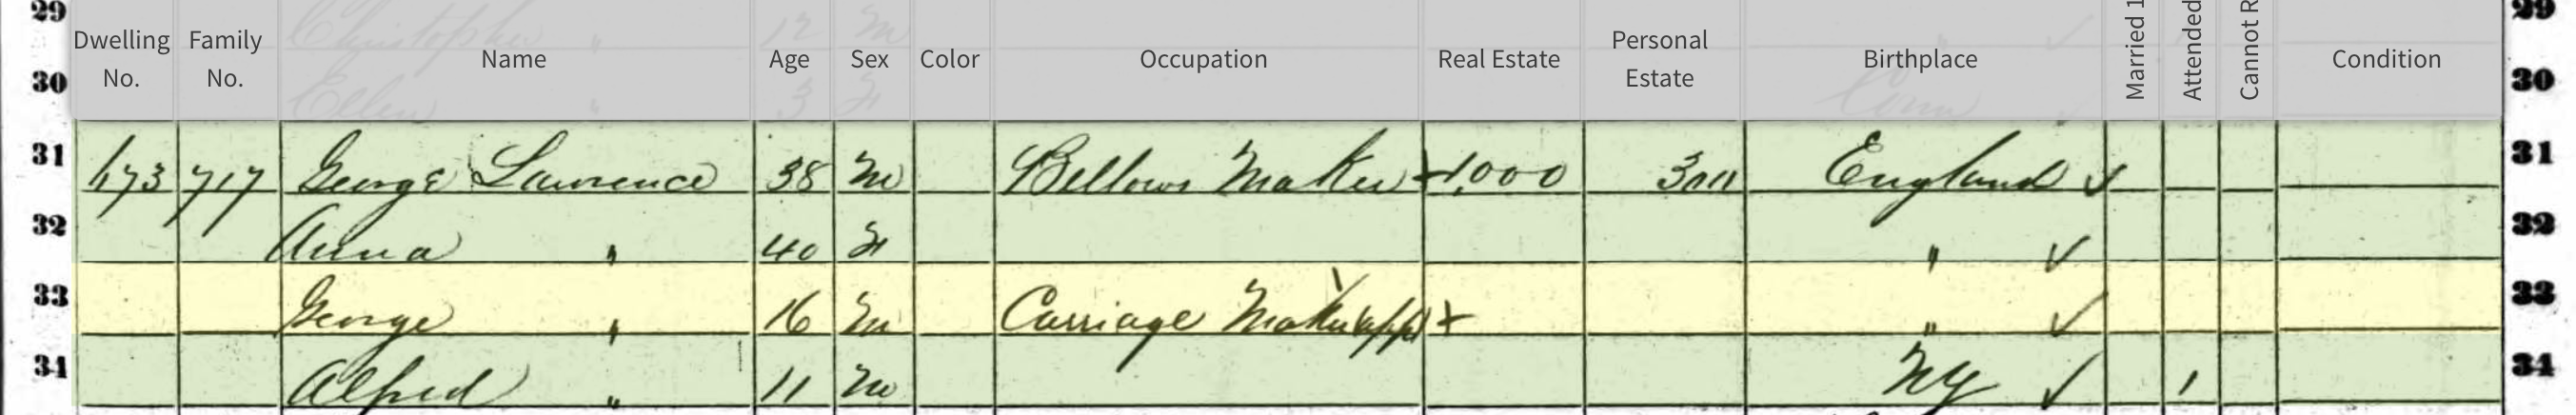 29 Christopher " 12 M " 29
Dwelling No. Family No. Name Age Sex Color Occupation Real Estate Personal Estate Birthplace Married 1 Attended Cannot R Condition
30 Ellen " 3 F Conn 30
31 673 717 George Lawrence 38 M Bellows Maker + 1,000 300 England ✓ 31
32 Anna " 40 F " ✓ 32
33 George " 16 M Carriage Maker (app) + " ✓ 33
34 Alfred " 11 M NY ✓ 1 34